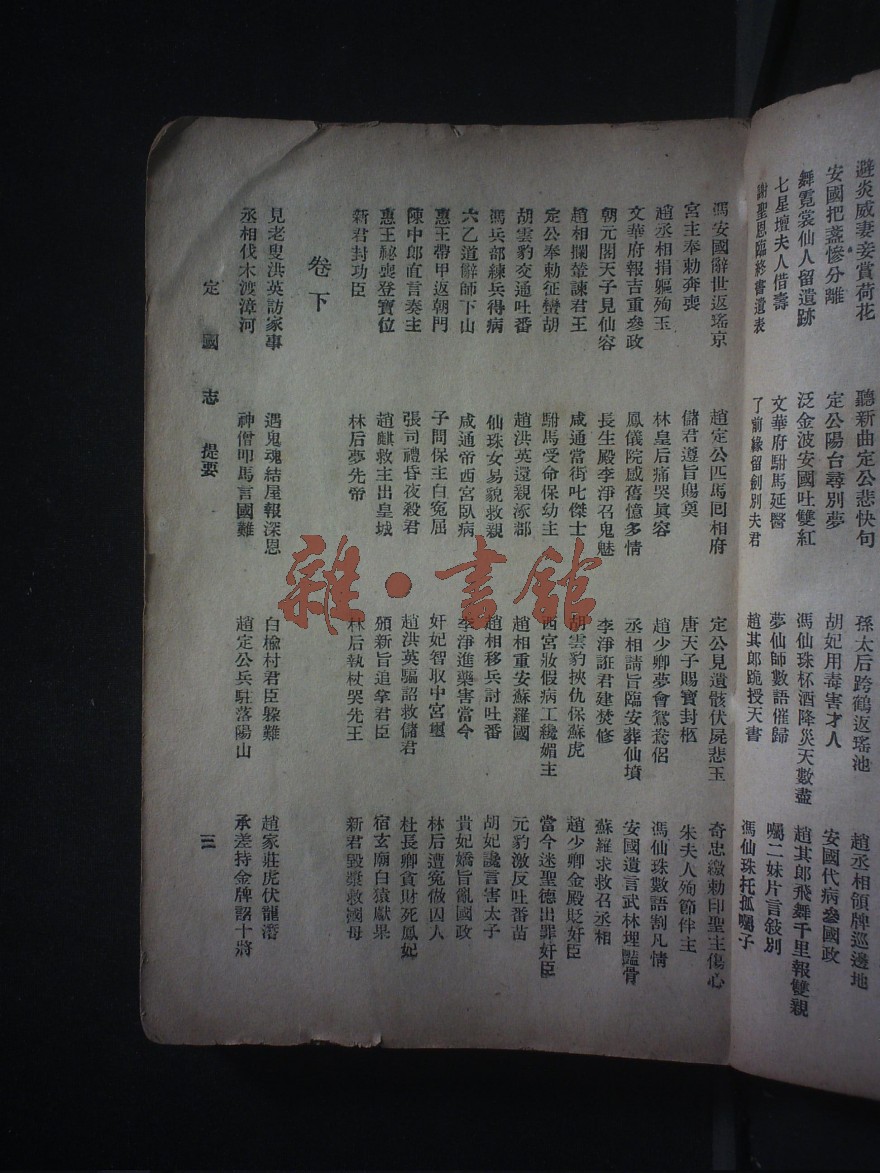 避炎威妻妾賞荷花 聽新曲定公悲快句 孫太后跨鶴返瑤池 趙丞相領牌巡邊地
安國把盞慘分離 定公陽台尋別夢 胡妃用毒害才人 安國代病參國政
舞霓裳仙人留遺跡 泛金波安國吐雙紅 馮仙珠杯酒降災天數盡 趙其郎飛舞千里報雙親
七星壇夫人借壽 文華府駙馬延醫 夢仙師數語催歸 囑二妹片言敍別
謝聖恩臨終書遺表 了前緣留劍別夫君 趙其郎跪授天書 馮仙珠托孤囑子
馮安國辭世返瑤京 趙定公匹馬囘相府 定公見遺骸伏屍悲玉 奇忠繳勅印聖主傷心
宮主奉勅奔喪 儲君遵旨賜奠 唐天子賜寶封柩 朱夫人殉節伴主
趙丞相捐軀殉玉 林皇后痛哭眞容 趙少卿夢會鴛鴦侶 馮仙珠數語割凡情
文華府報吉重參政 鳳儀院感舊憶多情 丞相請旨臨安葬仙墳 安國遺言武林埋豔骨
朝元閣天子見仙容 長生殿李淨召鬼魅 李淨誑君建焚修 蘇羅求救召丞相
趙相攔輦諫君王 咸通當街叱傑士 胡雲豹挾仇保蘇虎 趙少卿金殿貶奸臣
定公奉勅征蠻胡 駙馬受命保幼主 西宮妝假病工纔媚主 當今迷聖德出罪奸臣
胡雲豹交通吐番 趙洪英還親涿郡 趙相重安蘇羅國 元豹激反吐番苗
馮兵部練兵得病 仙珠女易貌救親 趙相移兵討吐番 胡妃讒言害太子
六乙道辭師下山 咸通帝西宮臥病 李淨進藥害當今 貴妃嬌旨亂國政
惠王帶甲返朝門 子問保主白冤屈 奸妃智取中宮璽 林后遭冤做囚人
陳中郎直言奏主 張司禮昏夜殺君 趙洪英騙詔救儲君 杜長卿貪財死鳳妃
惠王祕喪登寶位 趙麒救主出皇城 頒新旨追拿君臣 宿玄廟白猿獻果
新君封功臣 林后夢先帝 林后執杖哭先王 新君毀漿救國母
卷下
見老叟洪英訪家事 遇鬼魂結屋報深恩 白楡村君臣躱難 趙家莊虎伏龍潛
丞相伐木渡漳河 神僧叩馬言國難 趙定公兵駐落陽山 承差持金牌詔十將
定國志 提要 三
雜·書舘